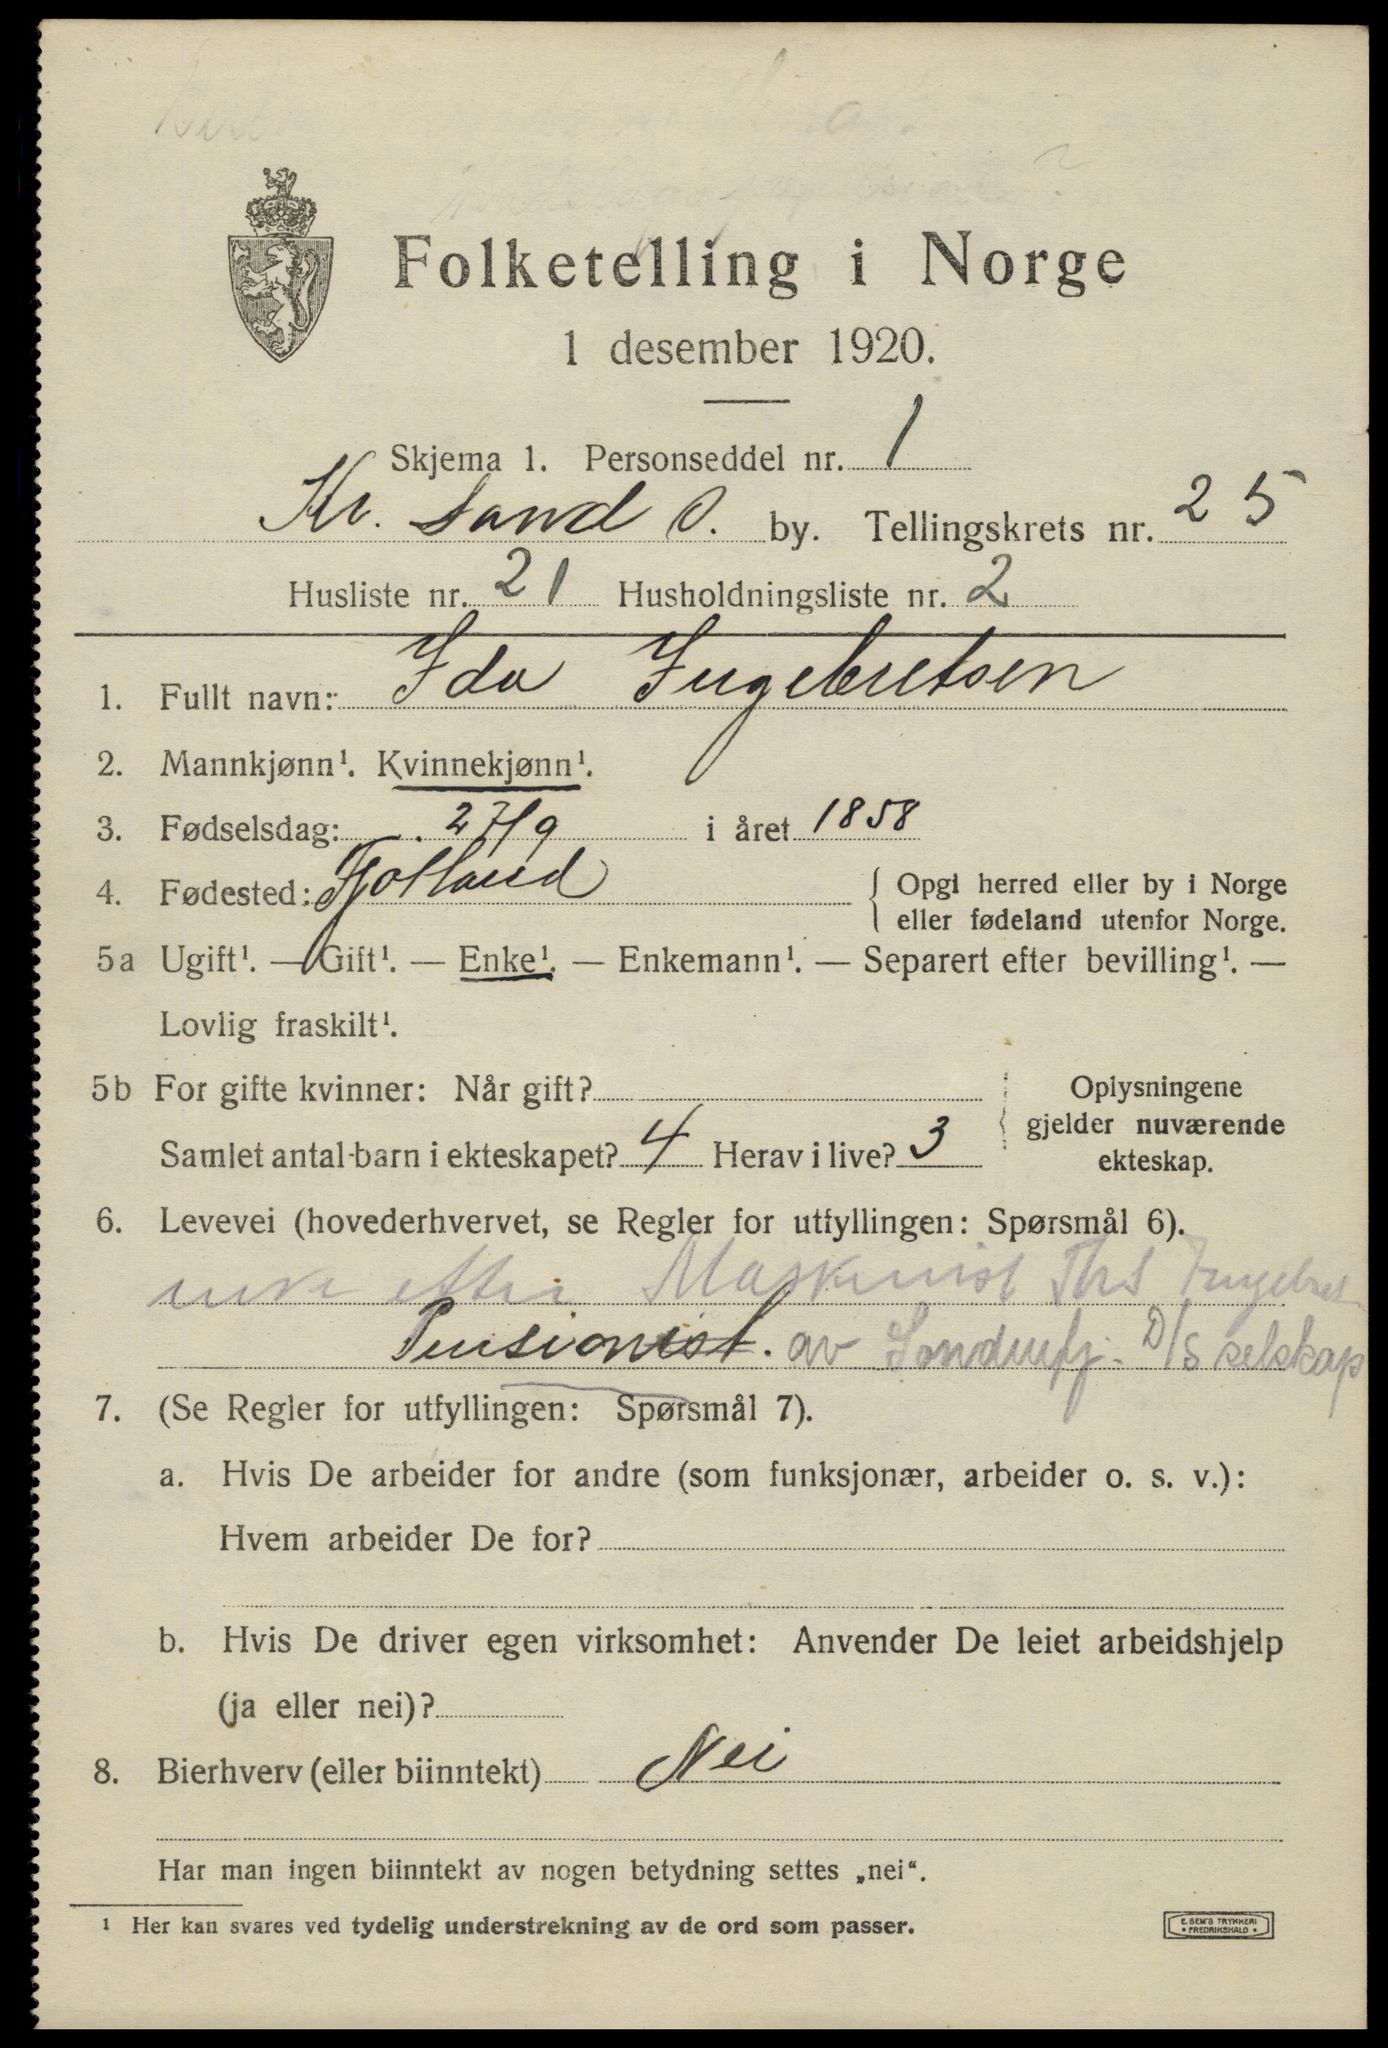 Folketelling i Norge
1 desember 1920.
Skjema 1. Personseddel nr. 1
Kr. Sand S. by. Tellingskrets nr. 25
Husliste nr. 21 Husholdningsliste nr. 2
1. Fullt navn: Ida Ingebretsen
2. Mannkjønn¹. Kvinnekjønn¹.
3. Fødselsdag: 27/9 i året 1858
4. Fødested: Fjotland { Opgi herred eller by i Norge
eller fødeland utenfor Norge.
5a Ugift¹. — Gift¹. — Enke¹. — Enkemann¹. — Separert efter bevilling¹. —
Lovlig fraskilt¹.
5b For gifte kvinner: Når gift? Oplysningene
gjelder nuværende
Samlet antal barn i ekteskapet? 4 Herav i live? 3 ekteskap.
6. Levevei (hovederhvervet, se Regler for utfyllingen: Spørsmål 6).
enke efter Maskinist Ths Ingebret
Pensionist. av D/S selskap
7. (Se Regler for utfyllingen: Spørsmål 7).
a. Hvis De arbeider for andre (som funksjonær, arbeider o. s. v.):
Hvem arbeider De for?
b. Hvis De driver egen virksomhet: Anvender De leiet arbeidshjelp
(ja eller nei)?
8. Bierhverv (eller biinntekt) Nei
Har man ingen biinntekt av nogen betydning settes „nei“.
¹ Her kan svares ved tydelig understrekning av de ord som passer.
E. SEM'S TRYKKERI
• FREDRIKSHALD •